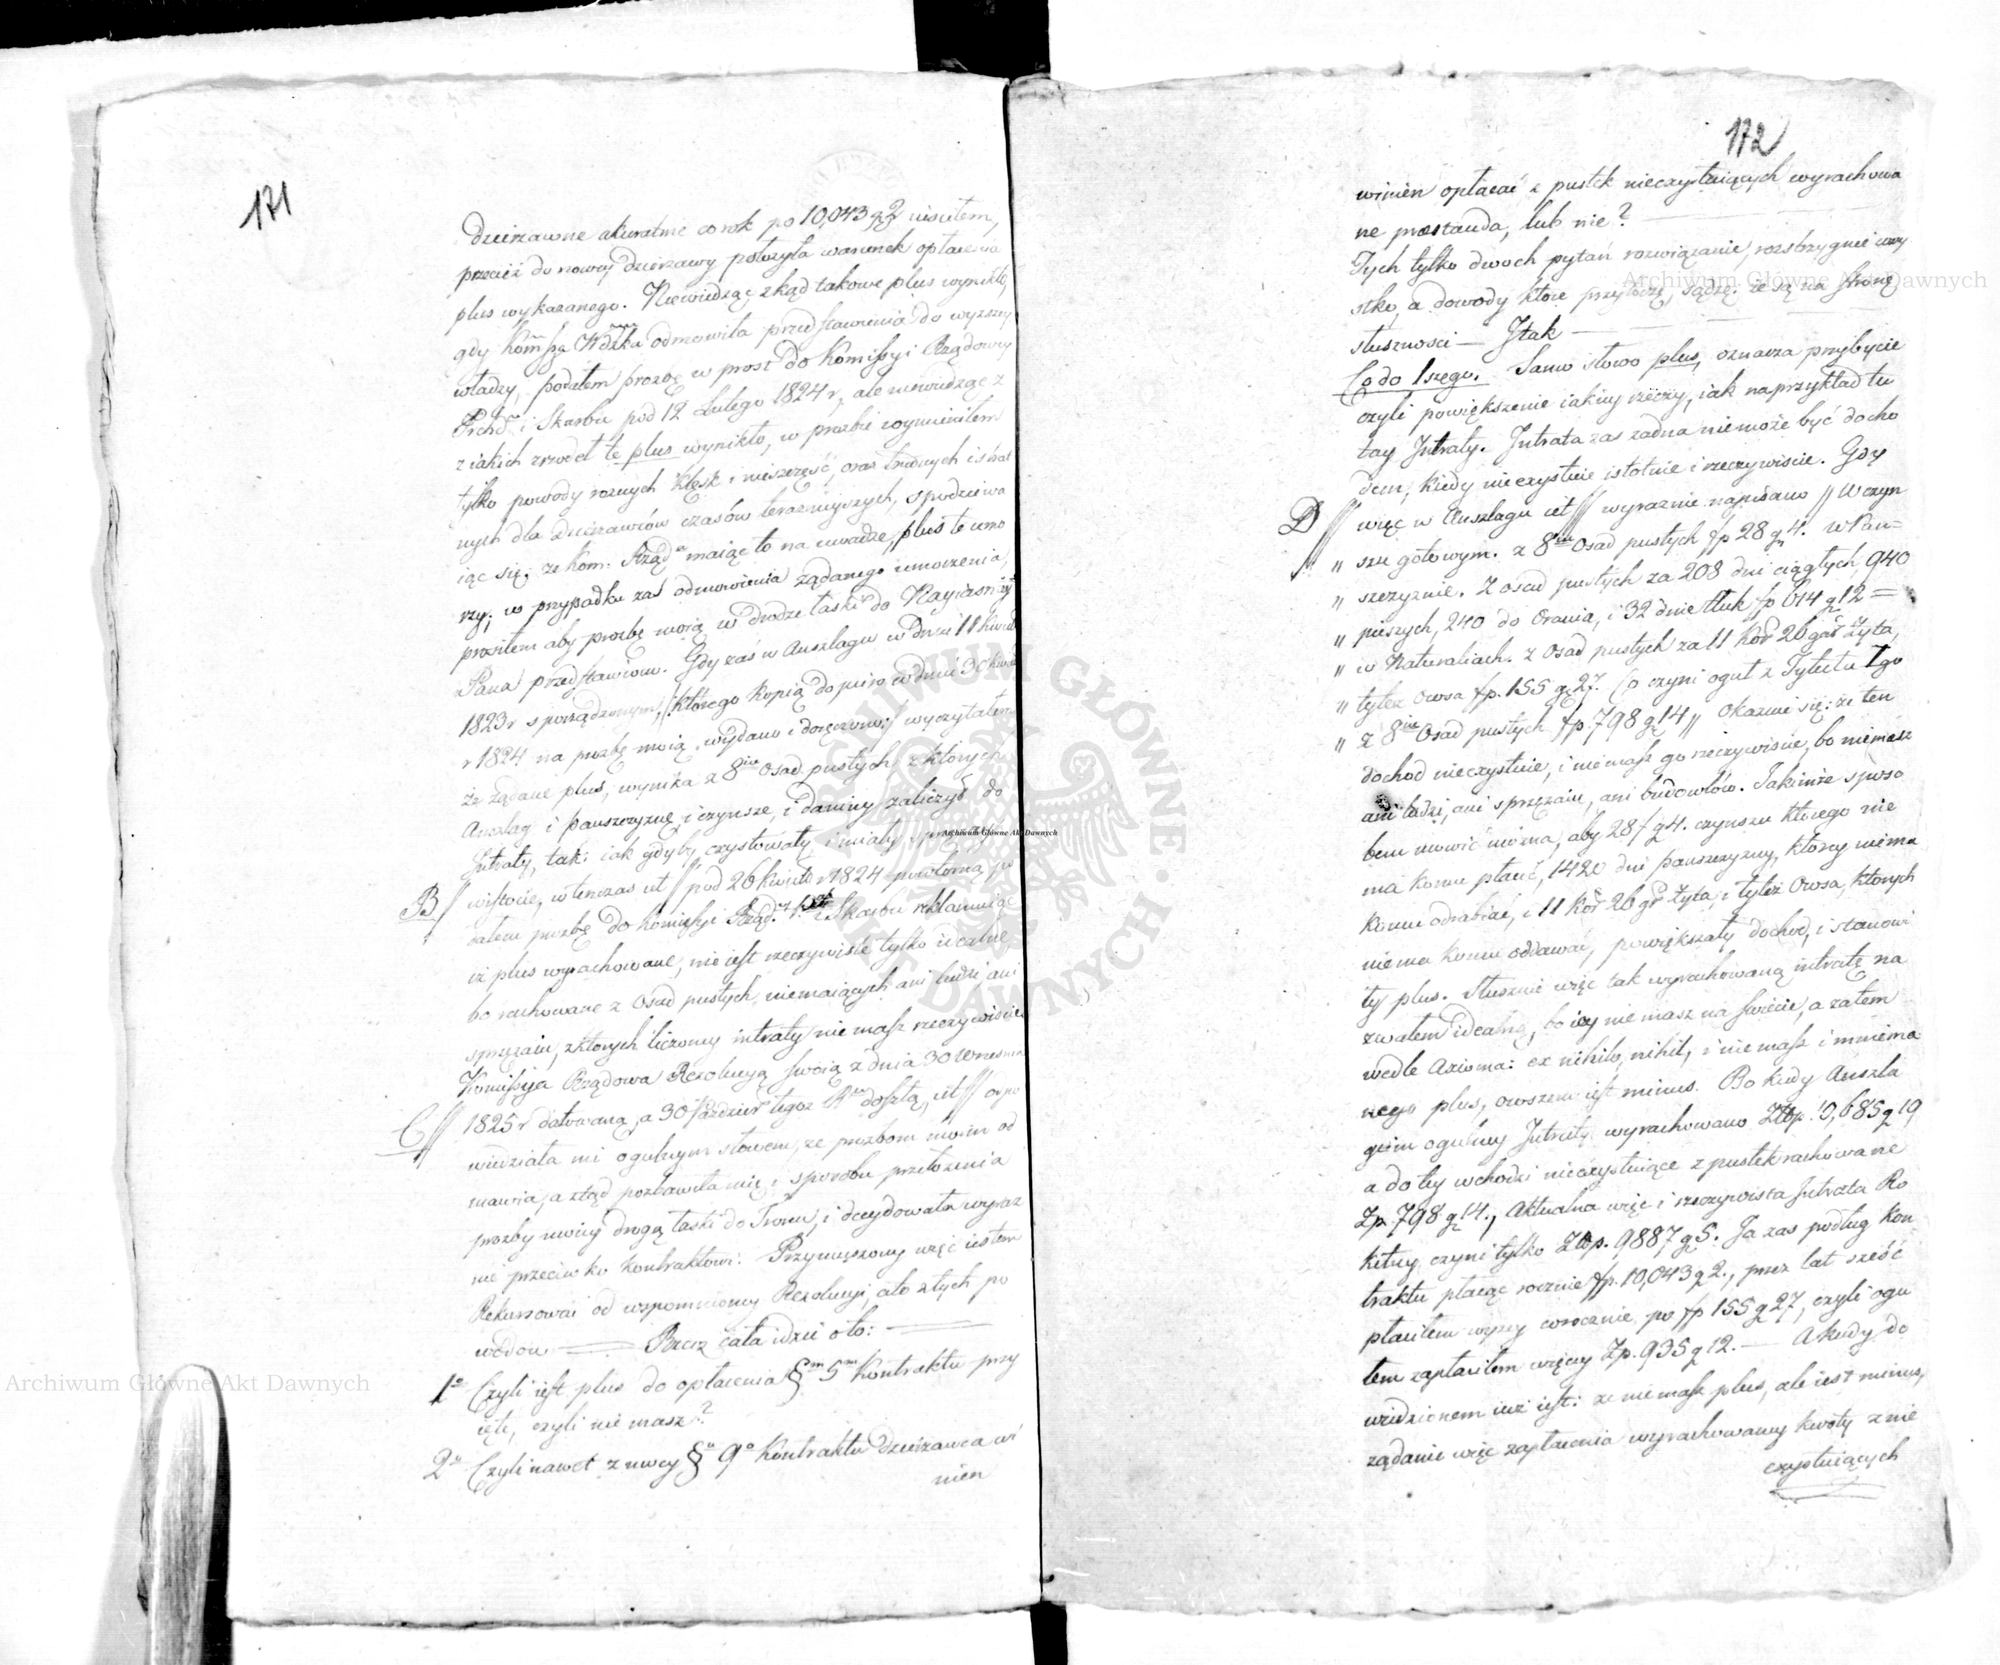 171
dzierzawne akuratnie co rok po 10,043 g 2 uiściłem,
przecież do nowey dzierzawy położyła warunek opłacenia
plus wykazanego. Niewiedząc zkąd takowe plus wynikło,
gdy Kommssa Wdzka odmowiła przedstawienia do wyzszey
władzy, podałem prozbę w prost do Komissyi Rządowey
Prchd i Skarbu pod 12 Lutego 1824 r, ale niewiedząc z
z iakich zrzodeł te plus wynikło, w prozbie wymieniłem
tylko powody roznych klęsk i nieszczęść, oraz trudnych i
nych dla Dzierzawców czasów teraznieyszych, spodziewa
iąc się, że Kom. Rząd. maiąc to na uwadze, plus te umo
rzy, w przypadku zaś odmowienia ządanego umorzenia,
prosiłem aby prozbę moią w drodze łaski do Nayiasn
Pana przedstawiono. Gdy zaś w Anszlagu w dniu 11 Kwiet
1823 r sporządzonym, którego kopią dopiero w dniu 30 Kwiet
r 1824 na prozbę moią wydano i doręczono, wyczytałem
że ządane plus, wynika z 8iu Osad pustych, z ktorych
Anszlag i pańszczyznę, i czynsze, i daniny zaliczył do
Intraty, tak: iak gdyby czystowały i miały sprzęzay
B // wistocie, w tenczas ut // pod 26 Kwiet r 1824 powtorną po
dałem prozbę do Komissyi Rząd. i Skarbu reklamuiąc
iż plus wyrachowane, nie iest rzeczywiste tylko idealne
bo rachowane z Osad pustych, niemaiących ani ludzi, ani
sprzęzaiu, z ktorych liczoney intraty nie masz rzeczywiście
Komissyia Rządowa Rezolucyą swoią z dnia 30 Wrzesnia
C // 1825 r datowaną, a 30 Pazdzier tegoz Rku doszłą, ut // odpo
wiedziała mi ogulnym słowem, ze prozbom moim od
mawia, a ztąd pozbawiła mię i sposobu przełożenia
prozby moiey drogą łaski do Tronu, i decydowała wyraz
nie przeciwko kontraktowi: Przymuszony więc iestem
Rekurrować od wspomnioney Rezolucyi, a to z tych po
wodow Rzecz cała idzie oto:
1o Czyli iest plus do opłacenia §m 5m Kontraktu przy
ięte, czyli nie masz?
2o Czyli nawet z mocy §u 9o Kontraktu Dzierzawca wi
nien
172
winien opłacać z pustek nieczystuiących wyrachowa
ne prostanda, lub nie?
Tych tylko dwoch pytań rozwiązanie, rozstrzygnie wszy
stko, a dowody ktore przytoczę, sądzę: że są na stronę
słuszności — Itak —
Co do 1szego. Samo słowo plus, oznacza przybycie
czyli powiększenie iakiey rzeczy, iak naprzykład tu
tay Intraty. Intrata zas zadna nie może być docho
dem, kiedy nie czystuie istotnie i rzeczywiście. Gdy
D // więc w Anszlagu ut // wyraznie napisano // W czyn
" szu gotowym. z 8iu Osad pustych fp 28 g 4. w Pań=
" szczyznie. Z osad pustych za 208 dni ciągłych, 940
" pieszych, 240 do Orania, i 32 dnie tłuk fp 614 g 12 =
" w Naturaliach. z Osad pustych za 11 kor 26 gar Żyta,
" tyleż Owsa fp. 155 g 27. Co czyni oguł z Tytułu I go
" z 8iu Osad pustych fp. 798 g 14 " Okazuie się: że ten
dochod nieczystuie, i nie masz go rzeczywiście, bo niemasz
ani ludzi, ani sprzęzaiu, ani budowlów. Jakimże sposo
bem mowić można, aby 28 f g 4. czynszu ktorego nie
ma komu płacić, 1420 dni pańszczyzny, ktorey niema
komu odrabiać, i 11 kor 26 gr Żyta, i tyleż Owsa, ktorych
niema komu oddawać, powiększały dochod, i stanowi
ły plus. Słusznie więc tak wyrachowaną intratę na
zwałem idealną, bo iey nie masz na świecie, a zatem
wedle Axioma: ex nihilo, nihil, i nie masz i mniema
nego plus, owszem iest minus. Bo kiedy Anszla
giem ogulney Intraty wyrachowano Złp. 10,685 g 19
a do tey wchodzi nieczystuiące z pustek rachowane
Zp. 798 g 14., Aktualna więc i rzeczywista Intrata Ro
kitny czyni tylko Złp. 9887 g 5. Ja zas podług kon
traktu płacąc rocznie fp. 10,043 g 2., przez lat sześć
płaciłem wyzey corocznie po fp 155 g 27, czyli ogu
łem zapłaciłem więcey Zp. 935 g 12. — A kiedy do
wiedzionem iuż iest: ze nie masz plus, ale iest minus,
ządanie więc zapłacenia wyrachowaney kwoty z nie
czystuiących
Archiwum Główne Akt Dawnych
Archiwum Główne Akt Dawnych
Archiwum Główne Akt Dawnych
ARCHIWUM GŁÓWNE AKT DAWNYCH